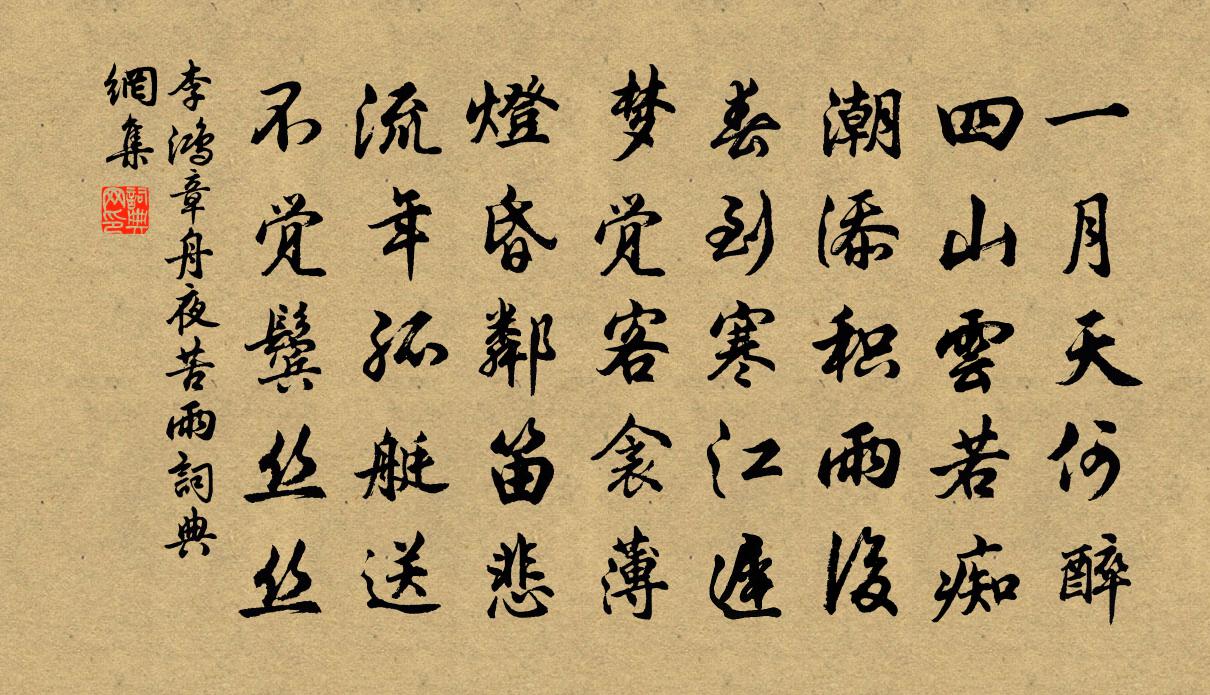 一月天何醉
四山雲若痴
潮添积雨後
春到寒江遲
梦覚客衾薄
燈昏鄰笛悲
流年孤艇送
不覚鬓丝丝
李鴻章舟夜苦雨詞典
網集
詞典網印